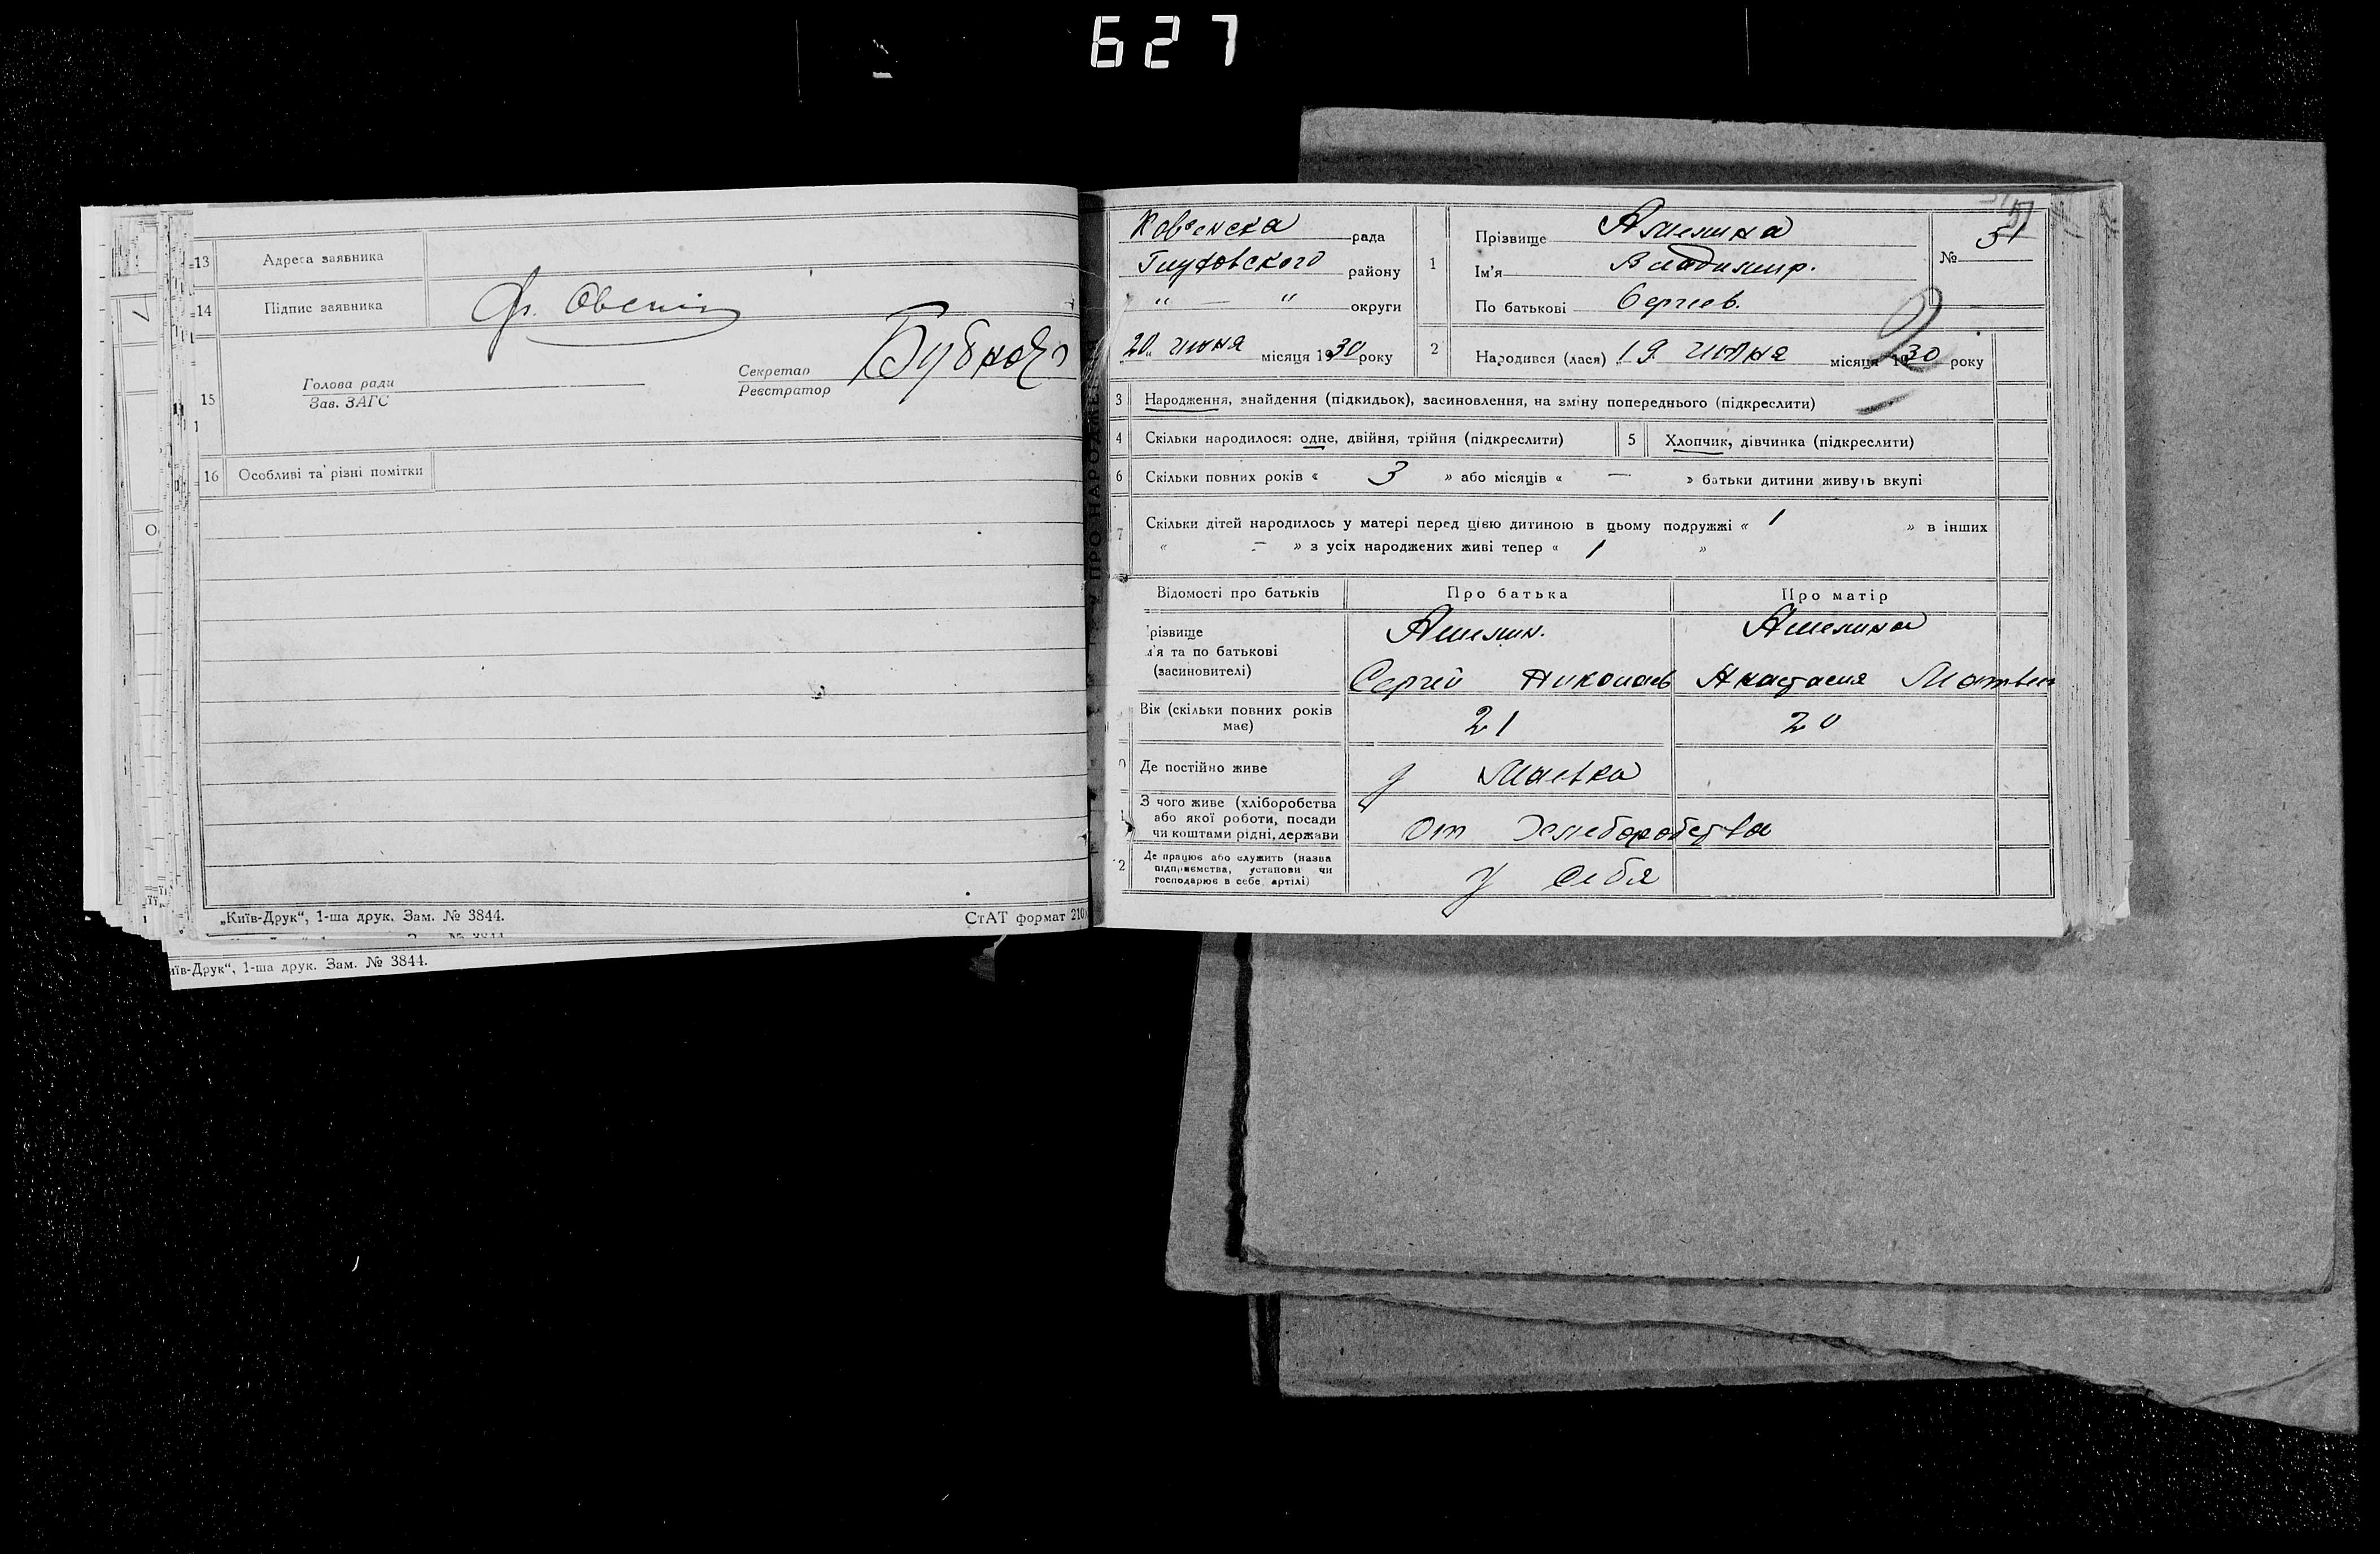 627
13 Адреса заявника
14 Підпис заявника
15 Голова ради
Зав. ЗАГС
Секретар
Реєстратор
16 Особливі та різні помітки
„Київ-Друк“, 1-ша друк. Зам. № 3844.
СтАТ формат 210
їв-Друк“, 1-ша друк. Зам. № 3844.
рада
Глуховского району
" — " округи
20 июня місяця 1930 року
1 Прізвище
Ім'я Владимир.
По батькові Сергеев.
№ 51
51
2 Народився (лася) 19 июня місяця 1930 року
3 Народження, знайдення (підкидьок), засиновлення, на зміну попереднього (підкреслити)
4 Скільки народилося: одне, двійня, трійня (підкреслити)
5 Хлопчик, дівчинка (підкреслити)
6 Скільки повних років « 3 » або місяців « — » батьки дитини живуть вкупі
7 Скільки дітей народилось у матері перед цією дитиною в цьому подружжі « 1 » в інших
« – » з усіх народжених живі тепер « 1 »
Відомості про батьків Про батька Про матір
різвище
м'я та по батькові
(засновителі)
Сергей Николаев Анастасия Матвеев
Вік (скільки повних років має) 21 20
Де постійно живе
З чого живе (хліборобства
або якої роботи, посади
чи коштами рідні, держави
От Хлеборобства
2 Де працює або служить (назва
підприємства, установи чи
господарює в себе, артілі)
у себя